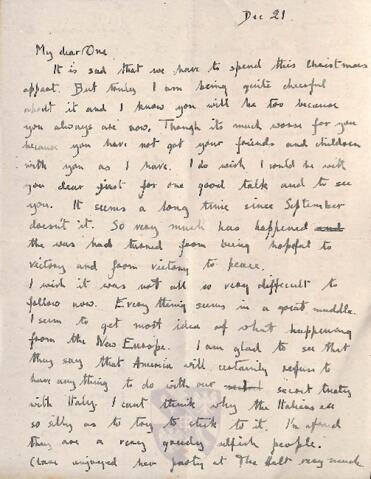 Dec 21
My dear One
It is sad that we have to spend this Christmas
apart. But truly I am being quite cheerful
about it and I know you will be too because
you always are now. Though its much worse for you
because you have not got your friends and children
with you as I have. I do wish I could be with
you dear just for one good talk and to see
you. It seems a long time since September
doesn't it. So very much has happened and
the war had turned from being hopeful to
victory and from victory to peace.
I wish it was not all so very difficult to
follow now. Every thing seems in a great muddle.
I seem to get most idea of what happening
from the New Europe. I am glad to see that
they say that America will certainly refuse to
have any thing to do with our secret treaty
with Italy. I cant think why the Italians are
so silly as to try to stick to it. I'm afraid
they are a very greedy selfish people.
enjoyed her party at The Halt very much